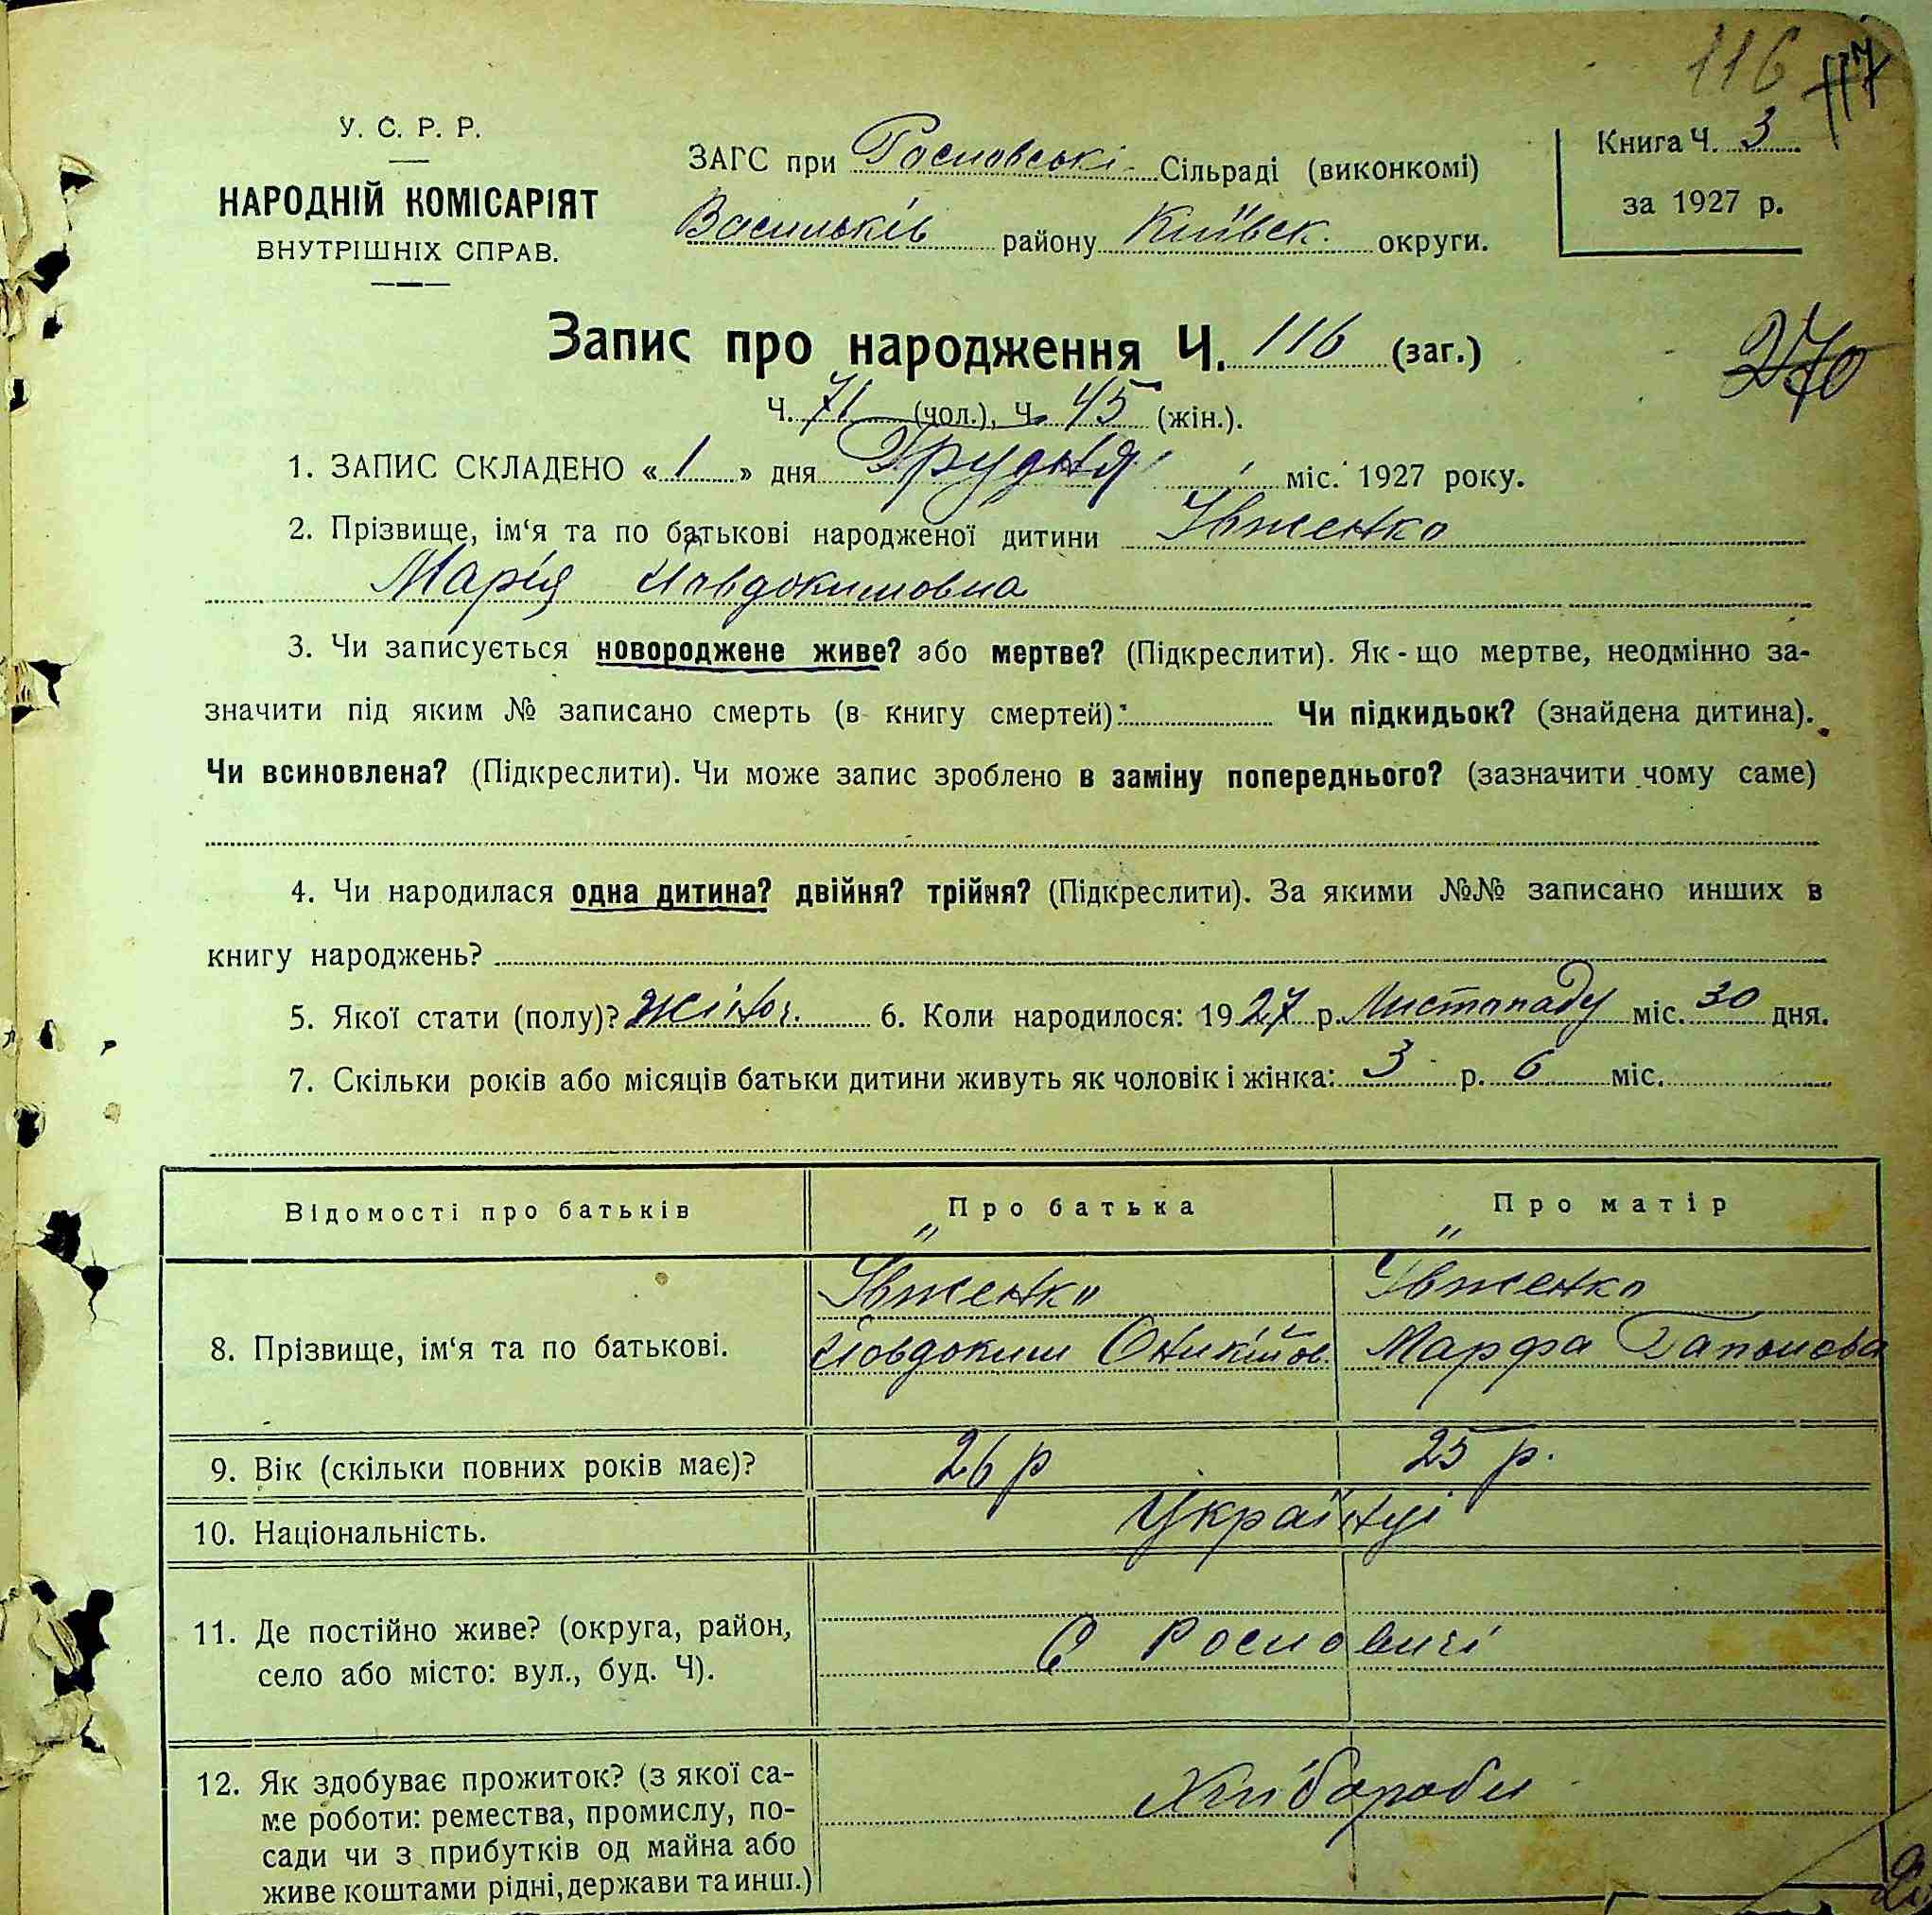 116 117
У. С. Р. Р.
НАРОДНІЙ КОМІСАРІЯТ
ВНУТРІШНІХ СПРАВ.
ЗАГС при Росновські Сільраді (виконкомі)
Васильків району Київск. округи.
Книга Ч. 3
за 1927 р.
Запис про народження Ч. 116 (заг.)
270
Ч. 71 (чол.), Ч. 45 (жін.).
1. ЗАПИС СКЛАДЕНО « 1 » дня Грудня міс. 1927 року.
2. Прізвище, ім‘я та по батькові народженої дитини Івженко
Марія Иовдокимовна
3. Чи записується новороджене живе? або мертве? (Підкреслити). Як-що мертве, неодмінно за-
значити під яким № записано смерть (в книгу смертей): Чи підкидьок? (знайдена дитина).
Чи всиновлена? (Підкреслити). Чи може запис зроблено в заміну попереднього? (зазначити чому саме)
4. Чи народилася одна дитина? двійня? трійня? (Підкреслити). За якими №№ записано инших в
книгу народжень?
5. Якої стати (полу)? жіноч. 6. Коли народилося: 1927 р. Листопаду міс. 30 дня.
7. Скільки років або місяців батьки дитини живуть як чоловік і жінка: 3 р. 6 міс.
Відомості про батьків Про батька Про матір
8. Прізвище, ім‘я та по батькові.
Івженко
Иовдоким Оникійов.
Івженко
Марфа Гапонова
9. Вік (скільки повних років має)? 26 р 25 р.
10. Національність. Українці
11. Де постійно живе? (округа, район,
село або місто: вул., буд. Ч).
С Росновичі
12. Як здобуває прожиток? (з якої са-
ме роботи: ремества, промислу, по-
сади чи з прибутків од майна або
живе коштами рідні, держави та инш.)
Хлібороби